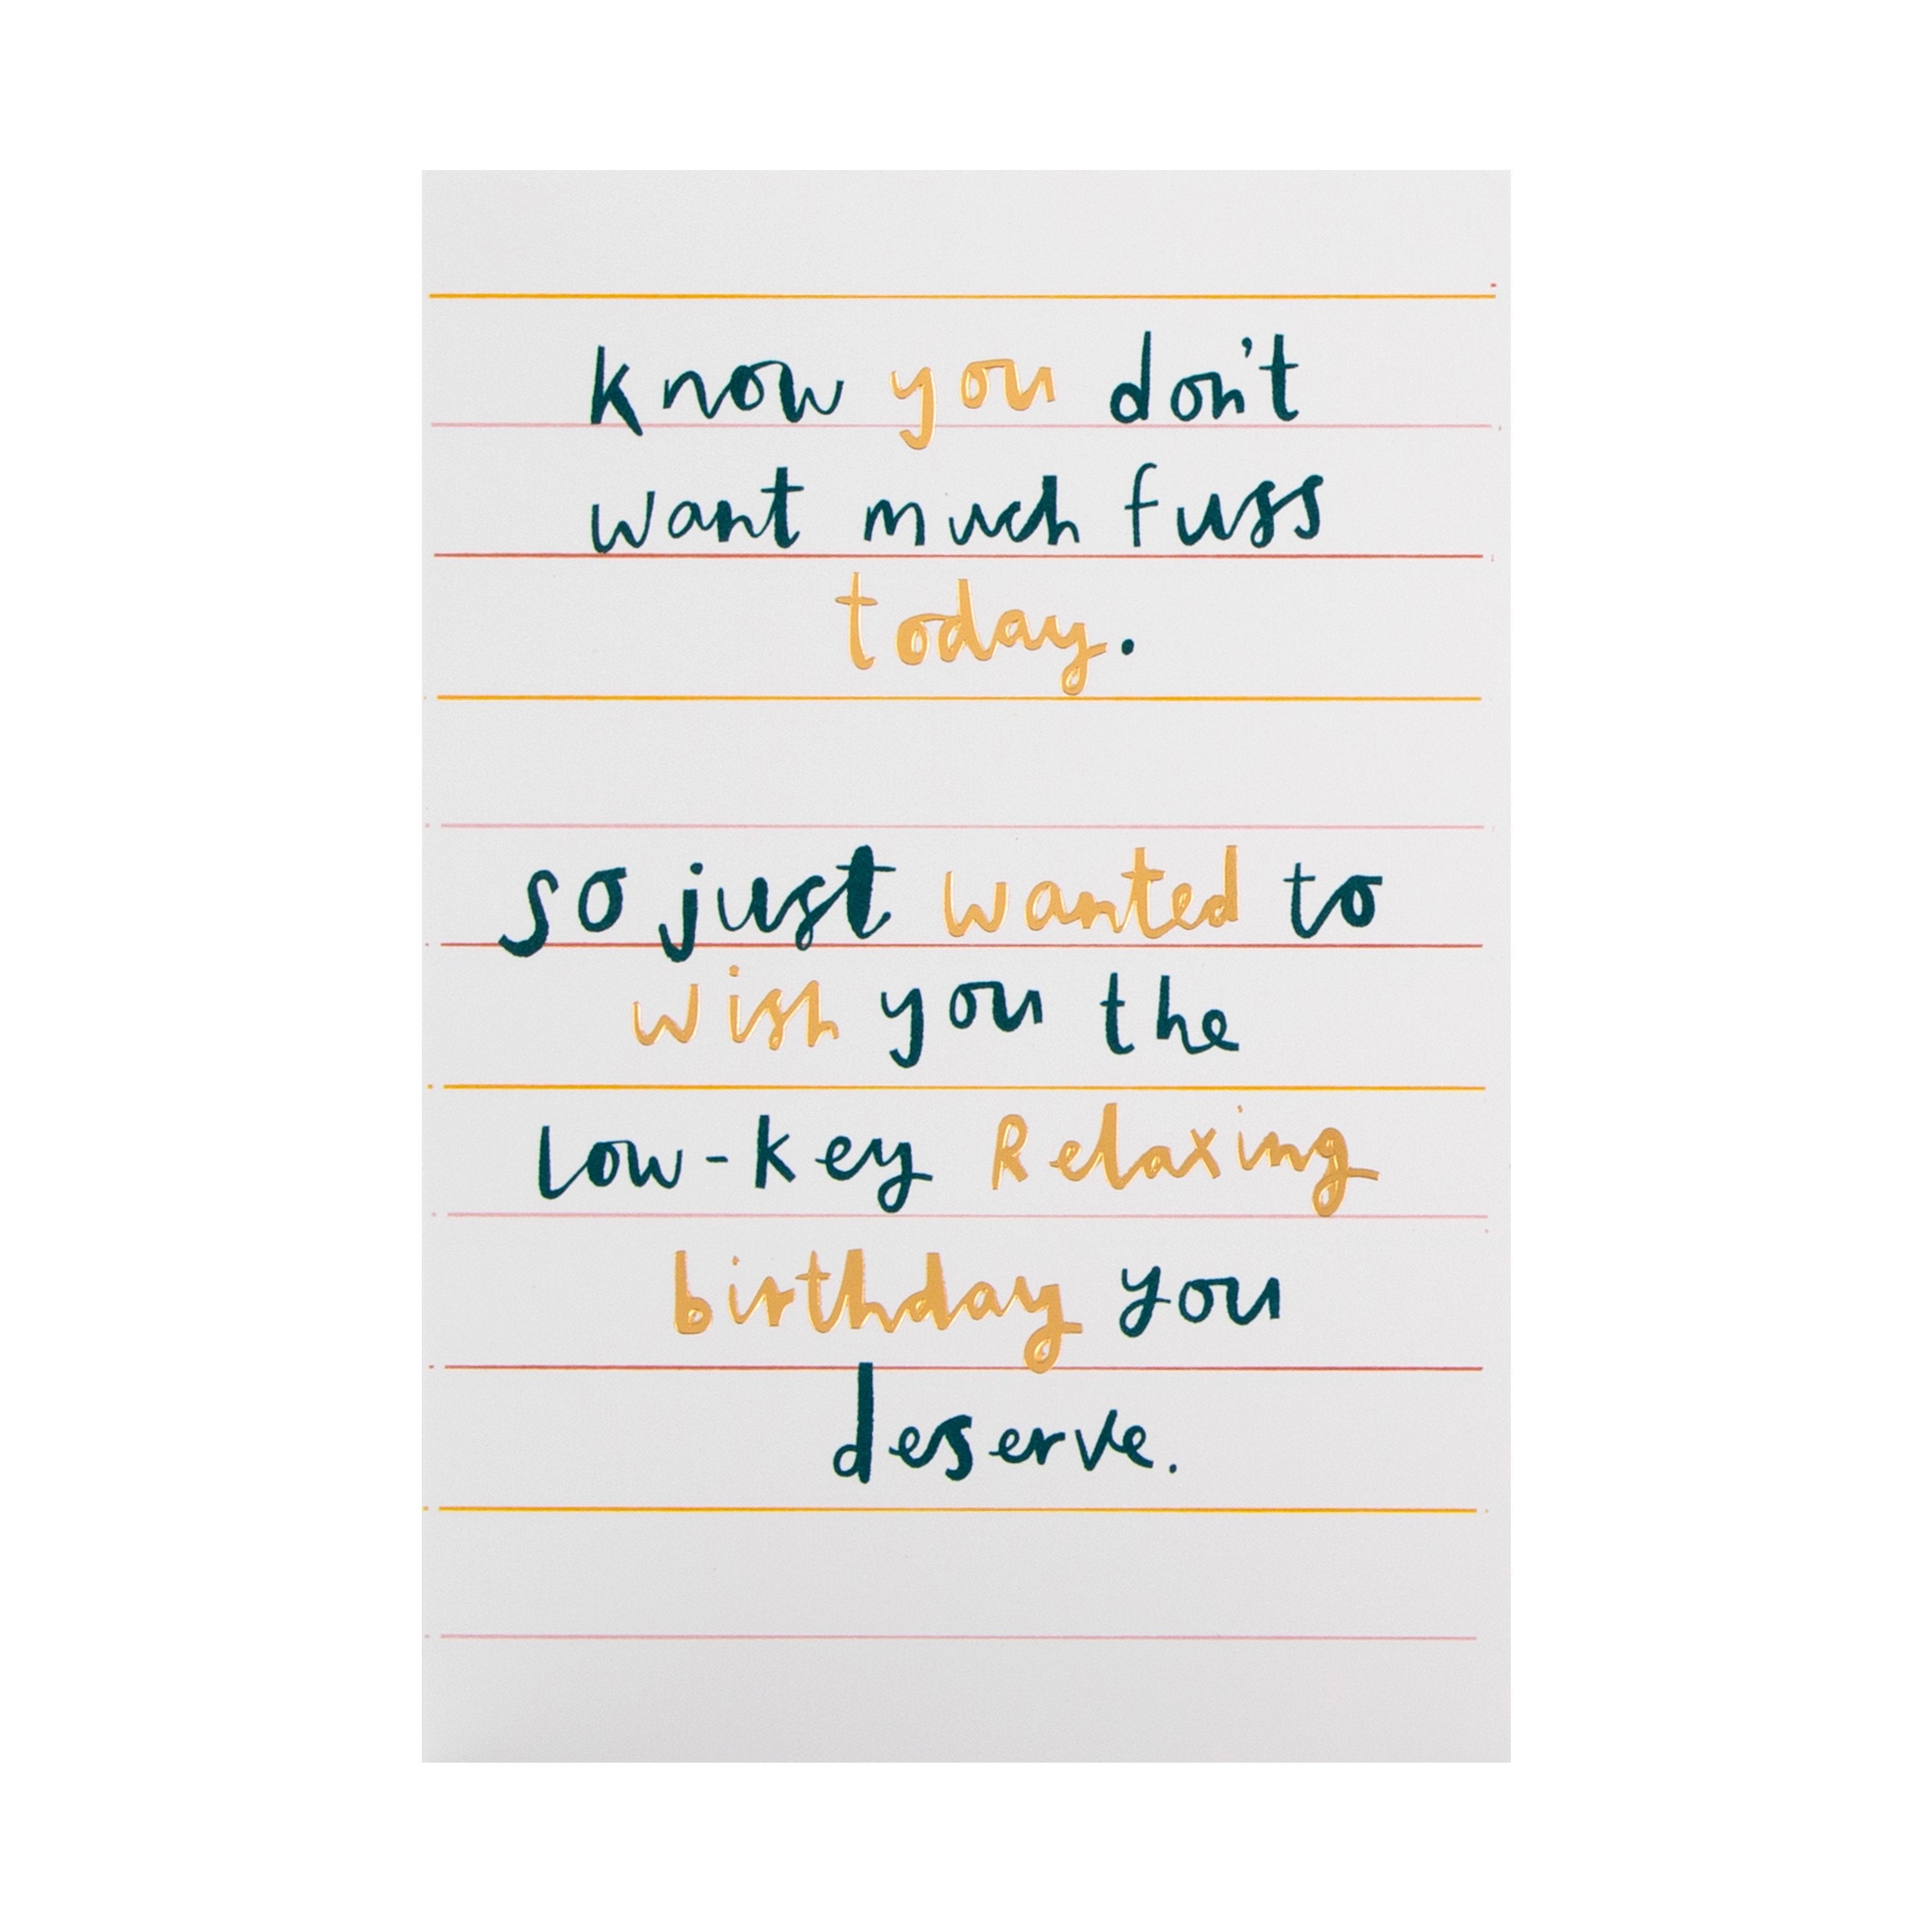 know you don't
want much fuss
today.
so just wanted to
wish you the
low-key Relaxing
birthday you
deserve.